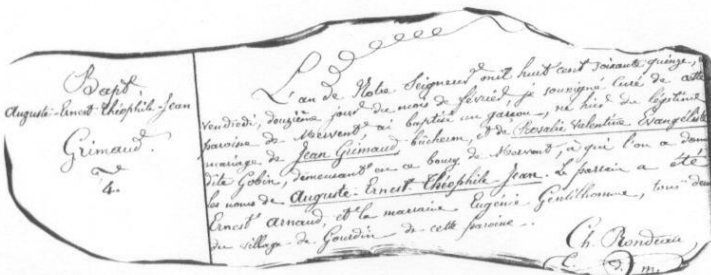 Bapt.
Auguste-Ernest-Théophile-Jean
Grimaud.
4.
L'an de Notre Seigneur mil huit cent soixante quinze,
vendredi, douzième jour du mois de février, je soussigné curé de cette
paroisse de Mervent, ai baptisé un garçon, né hier du légitime
mariage de Jean Grimaud bûcheron, et de Rosalie Valentine Evangéliste
dite Gobin, demeurant en ce bourg de Mervent, à qui l'on a donné
les noms de Auguste-Ernest-Théophile-Jean. Le parrain a été
Ernest Arnaud, et la marraine Eugénie Gentilhomme, tous deux
du village de Gourdin de cette paroisse.
Ch. Rondeau
C. D. M.